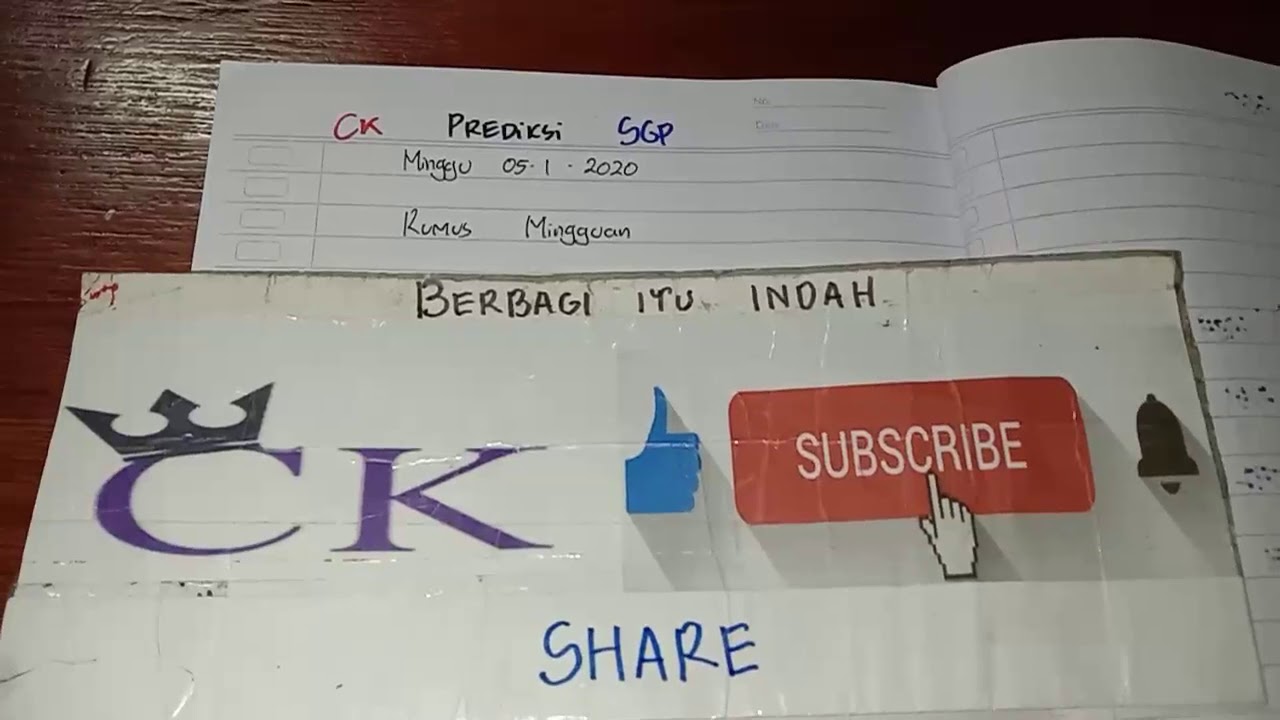 No.
Date
CK PREDiKSi SGP
Minggu 05-1-2020
Rumus Mingguan
BERBAGI ITU INDAH
CK
SUBSCRIBE
SHARE